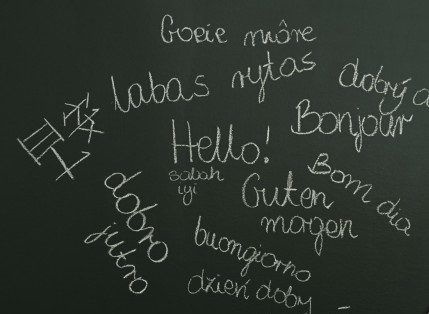 Goeie môre
labas rytas
dobrý d
Bonjour
Hello!
早安
sabah
iyi
Guten
morgen
Bom dia
dobro
jutro
buongiorno
dzień doby